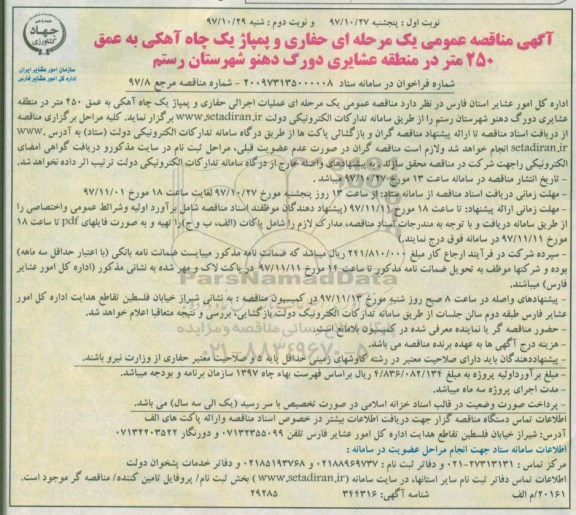 نوبت اول : پنجشنبه ۹۷/۱۰/۲۷ و نوبت دوم : شنبه ۹۷/۱۰/۲۹
جهاد
کشاورزی
سازمان امور عشایر ایران
اداره کل امور عشایر فارس
آگهی مناقصه عمومی یک مرحله ای حفاری و پمپاژ یک چاه آهکی به عمق
۲۵۰ متر در منطقه عشایری دورگ دهنو شهرستان رستم
شماره فراخوان در سامانه ستاد ۲۰۰۹۷۳۱۳۵۰۰۰۰۰۸ - شماره مناقصه مرجع ۹۷/۸
اداره کل امور عشایر استان فارس در نظر دارد مناقصه عمومی یک مرحله ای عملیات اجرائی حفاری و پمپاژ یک چاه آهکی به عمق ۲۵۰ متر در منطقه
عشایری دورگ دهنو شهرستان رستم را از طریق سامانه تدارکات الکترونیکی دولت www.setadiran.ir برگزار نماید. کلیه مراحل برگزاری مناقصه
از دریافت اسناد مناقصه تا ارائه پیشنهاد مناقصه گران و بازگشائی پاکت ها از طریق درگاه سامانه تدارکات الکترونیکی دولت (ستاد) به آدرس www.
setadiran.ir انجام خواهد شد ولازم است مناقصه گران در صورت عدم عضویت قبلی، مراحل ثبت نام در سایت مذکورو دریافت گواهی امضای
الکترونیکی راجهت شرکت در مناقصه محقق سازند و به پیشنهادهای واصله خارج از درگاه سامانه تدارکات الکترونیکی دولت ترتیب اثر داده نخواهد شد.
- تاریخ انتشار مناقصه در سامانه ساعت ۱۳ مورخ ۹۷/۱۰/۲۷ میباشد .
- مهلت زمانی دریافت اسناد مناقصه از سامانه ستاد: از ساعت ۱۳ روز پنجشنبه مورخ ۹۷/۱۰/۲۷ لغایت ساعت ۱۸ مورخ ۹۷/۱۱/۰۱
- مهلت زمانی ارائه پیشنهاد: تا ساعت ۱۸ مورخ ۹۷/۱۱/۱۱ (پیشنهاد دهندگان موظفند اسناد مناقصه شامل برآورد اولیه وشرائط عمومی واختصاصی را
از طریق سامانه دریافت و با توجه به مندرجات اسناد مناقصه، مدارک لازم را شامل پاکات (الف، ب و ج)را تهیه و به صورت فایلهای pdf تا ساعت ۱۸
مورخ ۹۷/۱۱/۱۱ در سامانه فوق درج نمایند).
- سپرده شرکت در فرآیند ارجاع کار مبلغ ۲۴۱/۸۱۰/۰۰۰ ریال میباشد که ضمانت نامه مذکور میبایست ضمانت نامه بانکی (با اعتبار حداقل سه ماهه)
بوده و شرکتها موظف به تحویل ضمانت نامه مذکور تا ساعت ۱۴ مورخ ۹۷/۱۱/۱۱ در پاکت لاک و مهر شده به نشانی مذکور (اداره کل امور عشایر
فارس) میباشند.
- پیشنهادهای واصله در ساعت ۸ صبح روز شنبه مورخ ۹۷/۱۱/۱۳ در کمیسیون مناقصه : به نشانی شیراز خیابان فلسطین تقاطع هدایت اداره کل امور
عشایر فارس طبقه دوم سالن جلسات از طریق سامانه تدارکات الکترونیک دولت بازگشایی، بررسی و نتیجه متعاقبا اعلام خواهد شد.
- حضور مناقصه گر یا نماینده معرفی شده در کمیسیون بلامانع است.
- هزینه درج آگهی ها به عهده برنده مناقصه می باشد.
- پیشنهاددهندگان باید دارای صلاحیت معتبر در رشته کاوشهای زمینی حداقل پایه ۵ و صلاحیت معتبر حفاری از وزارت نیرو باشند.
- مبلغ برآورداولیه پروژه به مبلغ ۴/۸۳۶/۰۸۲/۱۳۴ ریال براساس فهرست بهاء چاه ۱۳۹۷ سازمان برنامه و بودجه میباشد.
- مدت اجرای پروژه سه ماه میباشد.
- پرداخت صورت وضعیت در قالب اسناد خزانه اسلامی در صورت تخصیص با سر رسید (یک الی سه سال) می باشد.
اطلاعات تماس دستگاه مناقصه گزار جهت دریافت اطلاعات بیشتر در خصوص اسناد مناقصه وارائه پاکت های الف
آدرس: شیراز خیابان فلسطین تقاطع هدایت اداره کل امور عشایر فارس تلفن ۰۷۱۳۲۳۵۵۰۹۹ و دورنگار ۰۷۱۳۲۲۰۳۵۲۲
اطلاعات سامانه ستاد جهت انجام مراحل عضویت در سامانه :
مرکز تماس : ۲۷۳۱۳۱۳۱-۰۲۱ و دفاتر ثبت نام : ۰۲۱۸۸۹۶۹۷۳۷ و ۰۲۱۸۵۱۹۳۷۶۸ و دفاتر خدمات پشخوان دولت
اطلاعات تماس دفاتر ثبت نام سایر استانها، در سایت سامانه (www.setadiran.ir ) بخش ثبت نام/ پروفایل تامین کننده/ مناقصه گر موجود است.
۲۰۱۶۱/م الف شناسه آگهی: ۳۴۴۳۱۶ ۲۹۲۸۵
ParsNamadData
۰۲۱-۸۸۳۴۹۶۷۰-۵